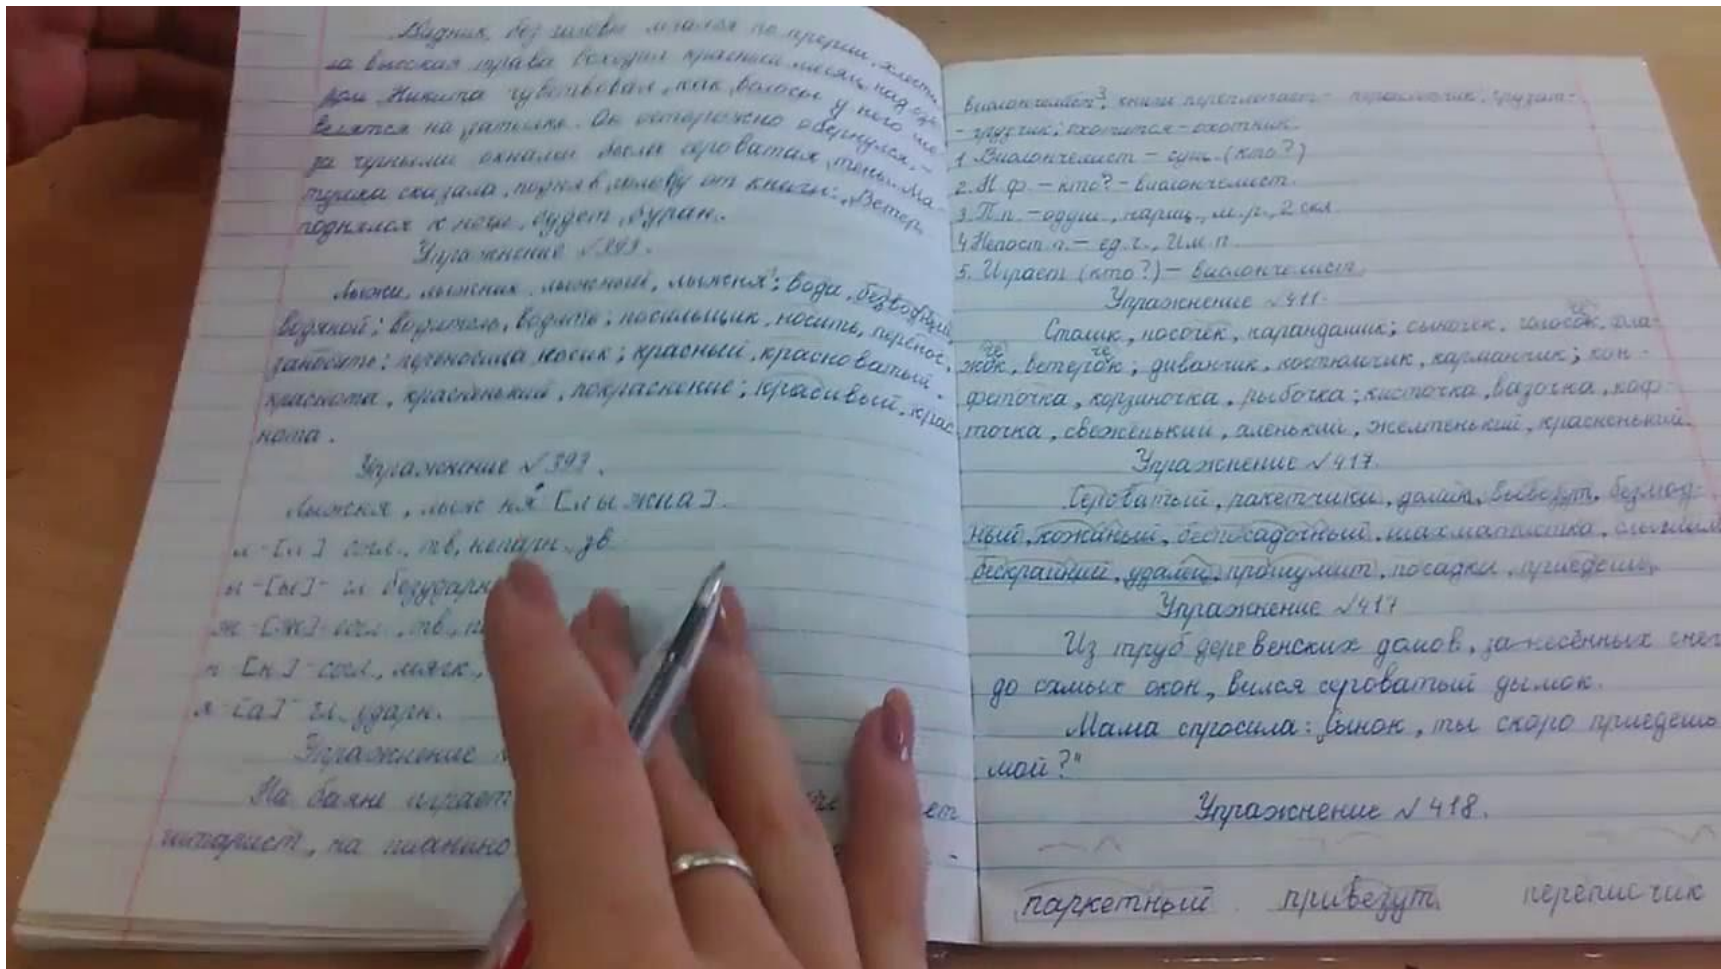 Всадник без головы мчался по прерии, хлеста-
ла высокая трава всходил красный месяц над озе-
ром. Никита чувствовал, как волосы у него ше-
велятся на затылке. Он осторожно обернулся, –
за черными окнами была сероватая тень. Ма-
тушка сказала, подняв голову от книги: „Ветер
поднялся к ночи, будет буран.
Упражнение №393.
Лыжи, лыжник, лыжный, лыжня; вода, безводный,
водяной; водитель, водить; носильщик, носить, перенос,
заносить; переносица, носик; красный, красноватый
краснота, красненький, покраснение; красивый, крас
нота.
Упражнение №393.
Лыжня, лыж ня [лыжна].
л-[л] согл., тв, непарн., зв.
-[ы]- гл. безударн
ж-[ж]-согл., тв., 
н-[н]-согл., мягк.,
я-[а]- гл. ударн.
Упражнение
На баяне играет
гитарист, на пианино
ет
виолончелист³, книги переплетает – переплетчик, грузит-
- грузчик; охотится – охотник.
1. Виолончелист – сущ. (кто?)
2. Н.ф. – кто? – виолончелист.
3. П.п. – одуш., нариц., м.р., 2 скл.
4. Непост. п. – ед.ч., Им.п.
5. Играет (кто?) – виолончелист.
Упражнение №411.
Столик, носочек, карандашик; сыночек, голосок,
жок, ветерок; диванчик, костюмчик, карманчик; кон-
феточка, корзиночка, рыбочка; кисточка, вазочка, коф-
точка, свеженький, аленький, желтенький, красненький.
Упражнение №417.
Сероватый, ракетчики, домик, вывезут,
ный, кожаный, беспосадочный, шахматистка,
бескрайний, удалой, прошумит, посадки, приедешь,
Упражнение №417
Из труб деревенских домов, занесённых снег
до самых окон, вился сероватый дымок.
Мама спросила: „Сынок, ты скоро приедешь
мой?"
Упражнение №418.
паркетный привезут переписчик